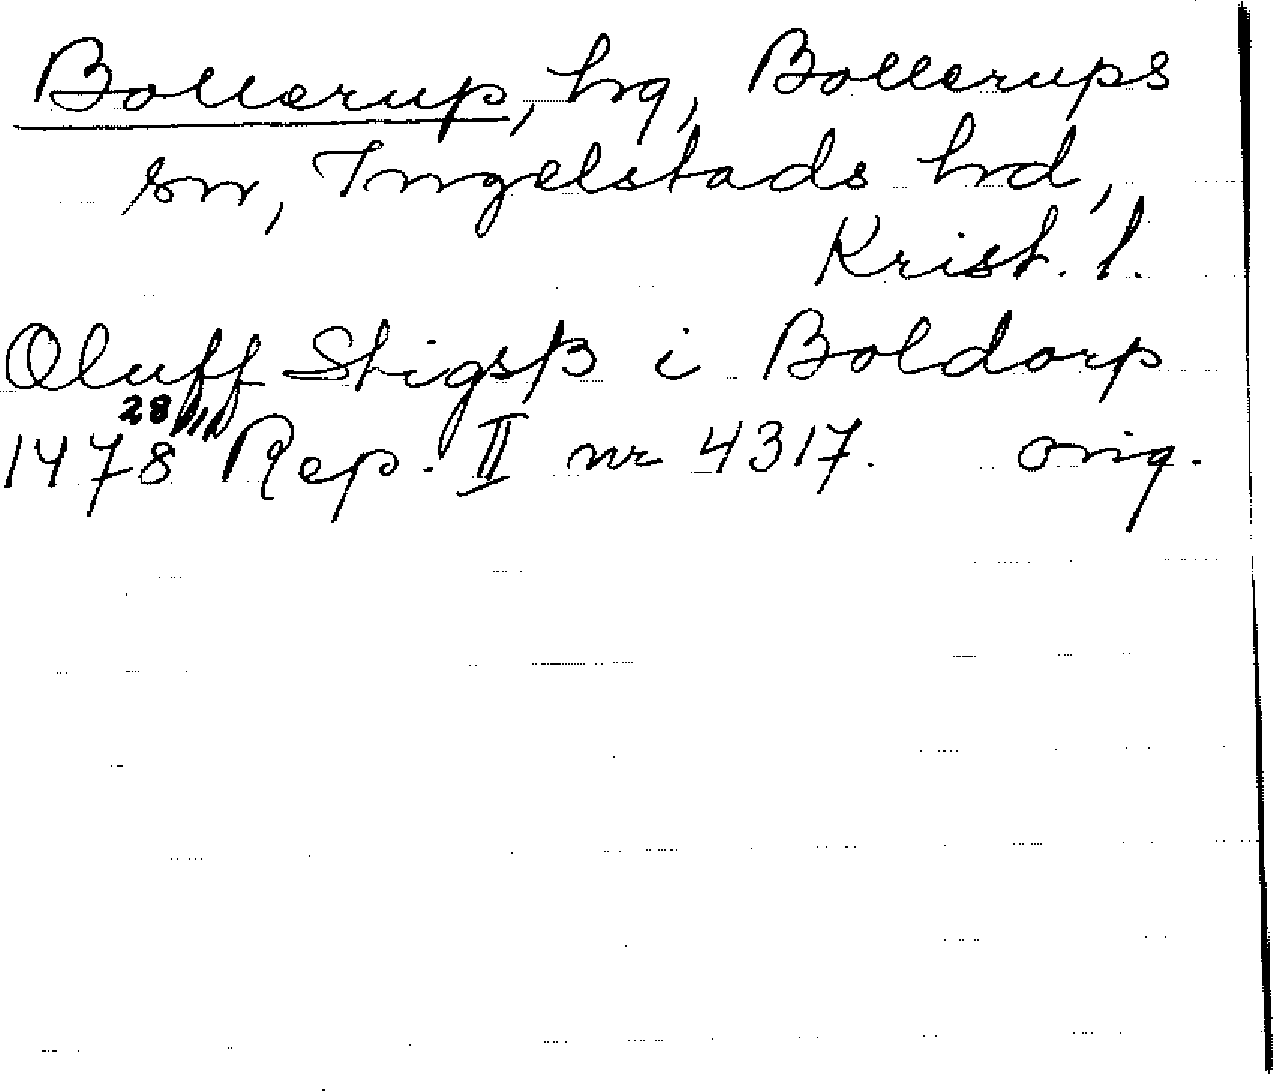 Bollerup, hg, Bollerups
sn, Ingelstads hd,
Krist. l.
Oluff Stigsß i Boldorp
1478 28/III Rep. II nr 4317. orig.